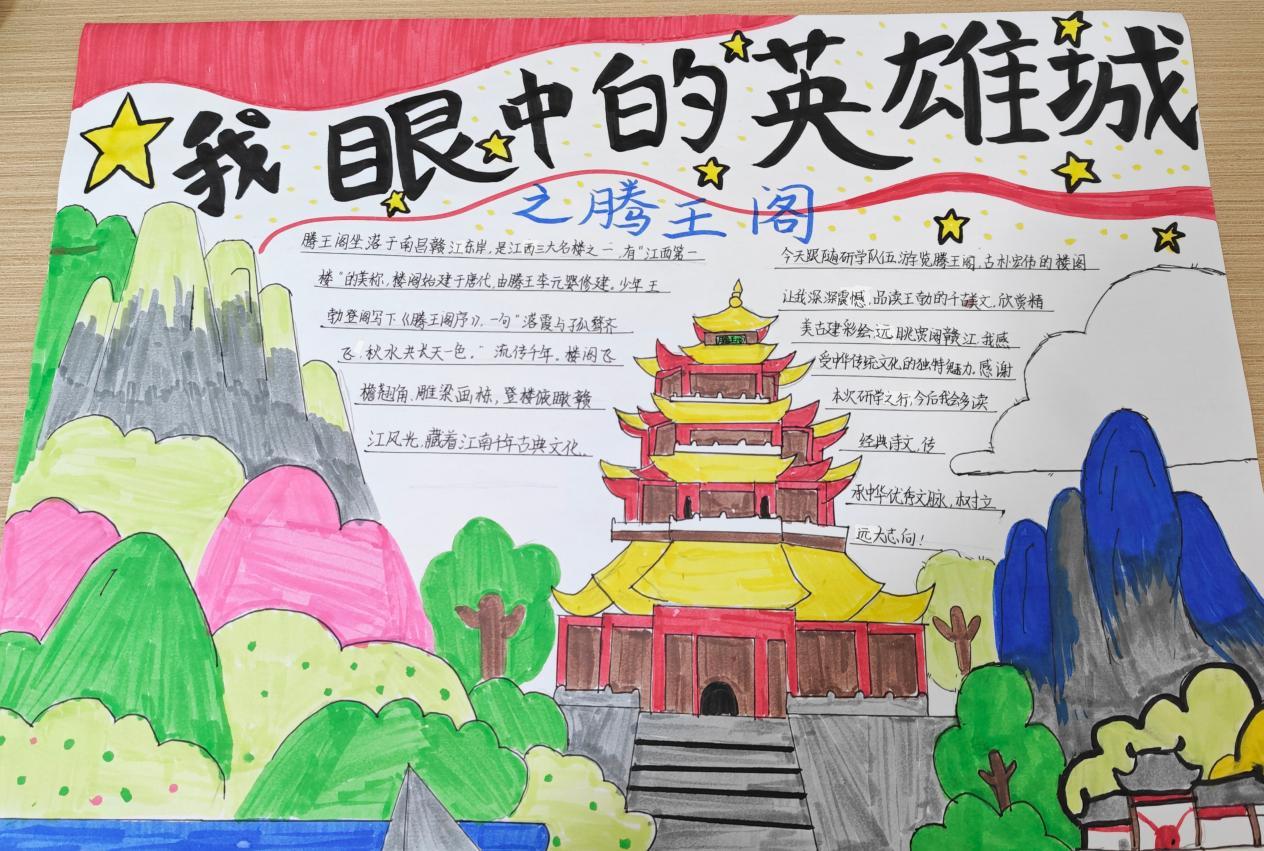 我眼中的英雄城
之腾王阁
腾王阁坐落于南昌赣江东岸,是江西三大名楼之一,有“江西第一
楼”的美称,楼阁始建于唐代,由腾王李元婴修建。少年王
勃登阁写下《腾王阁序》,一句“落霞与孤鹜齐
飞,秋水共长天一色。”流传千年。楼阁飞
檐翘角、雕梁画栋,登楼俯瞰赣
江风光,藏着江南千年古典文化。
今天跟随研学队伍,游览腾王阁,古朴宏伟的楼阁
让我深深震憾,品读王勃的千古美文,欣赏精
美古建彩绘,远眺宽阔赣江,我感
受中华传统文化的独特魅力,感谢
本次研学之行,今后我会多读
经典诗文,传
承中华优秀文脉,树立
远大志向!